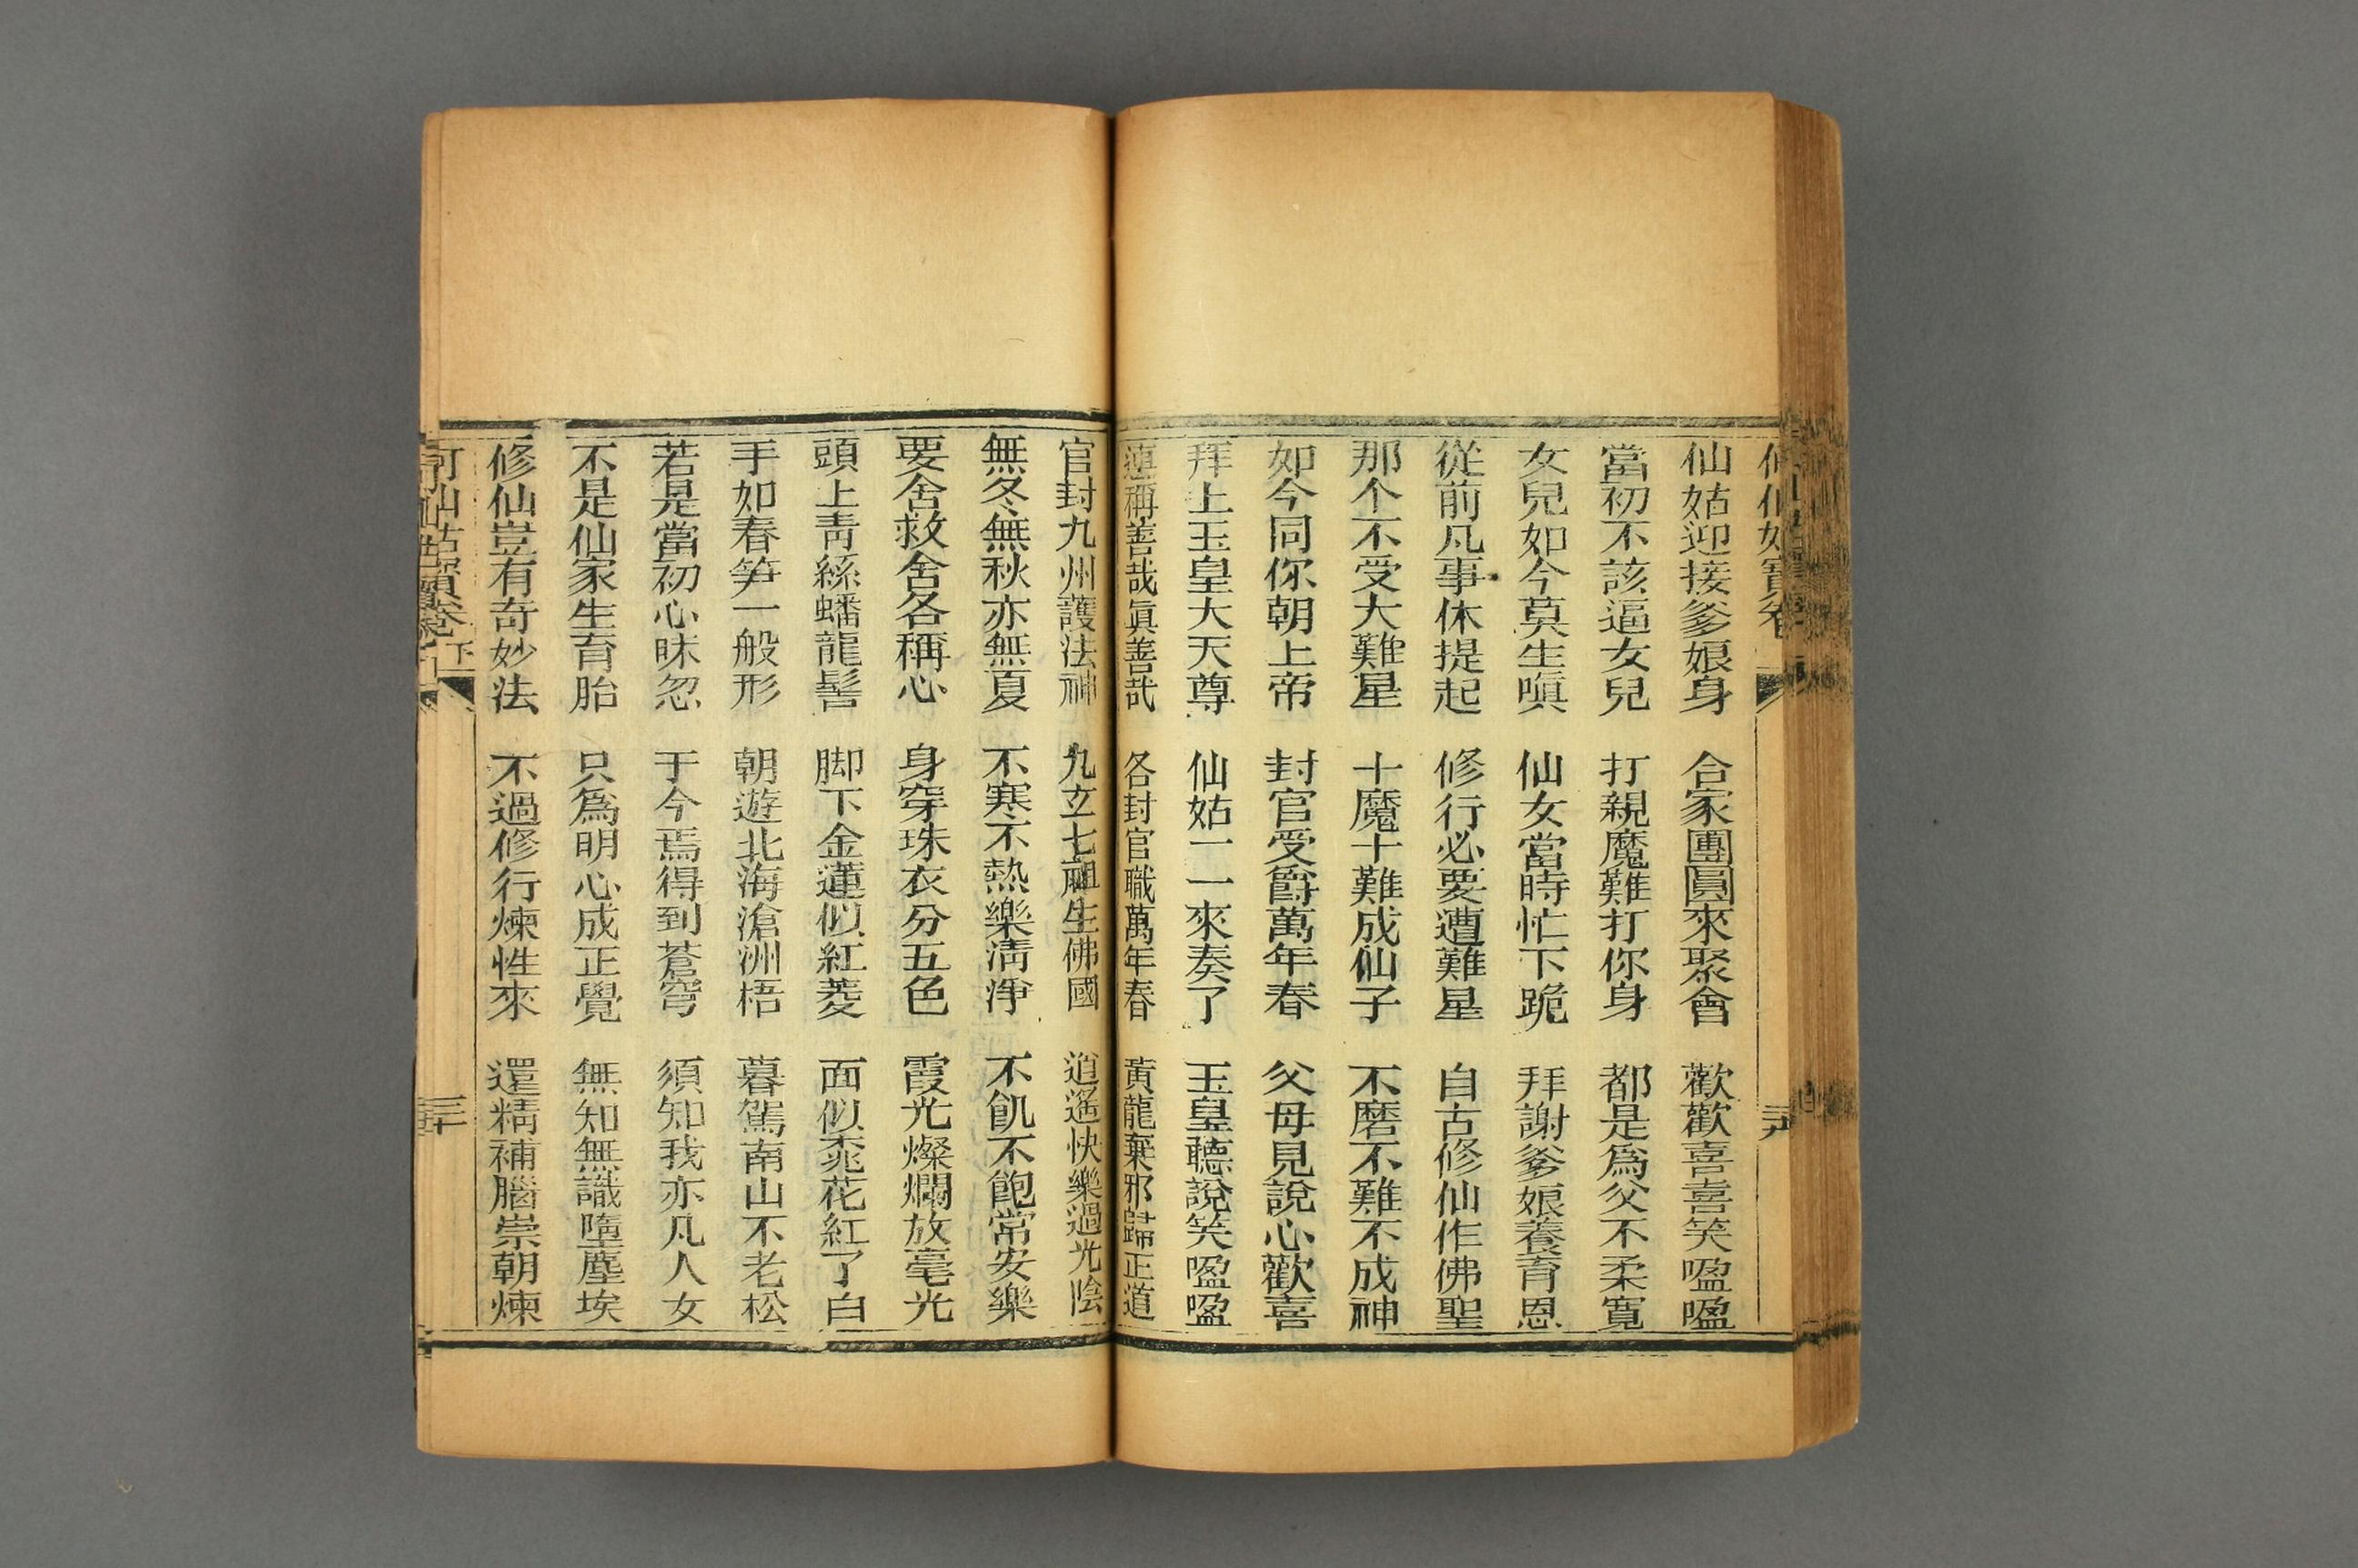 仙姑迎接爹娘身 合家團圓來聚會 歡歡喜喜笑嗌嗌
當初不該逼女兒 打親魔難打你身 都是爲父不柔寬
女兒如今莫生嗔 仙女當時忙下跪 拜謝爹娘養育恩
從前凡事休提起 修行必要遭難星 自古修仙作佛聖
那个不受大難星 十魔十難成仙子 不磨不難不成神
如今同你朝上帝 封官受爵萬年春 父母見說心歡喜
拜上玉皇大天尊 仙姑一一來奏了 玉皇聽說笑嗌嗌
連稱善哉眞善哉 各封官職萬年春 黃龍棄邪歸正道
官封九州護法神 九玄七祖生佛國 逍遙快樂過光陰
無冬無秋亦無夏 不寒不熱樂淸淨 不飢不飽常安樂
要舍救舍各稱心 身穿珠衣分五色 霞光燦爛放毫光
頭上靑絲蟠龍髻 脚下金蓮似紅菱 面似桃花紅了白
手如春笋一般形 朝遊北海滄洲梧 暮駕南山不老松
若是當初心昧忽 于今焉得到蒼穹 須知我亦凡人女
不是仙家生育胎 只爲明心成正覺 無知無識墮塵埃
修仙豈有奇妙法 不過修行煉性來 還精補腦崇朝煉
何仙姑寶卷 下 三十